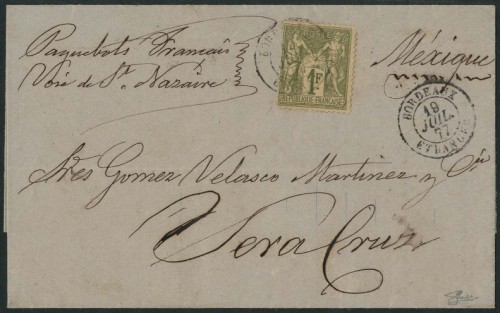 Paquebots Français
Voie de St Nazaire
Méxique
BORDEAUX
1F
REPUBLIQUE FRANÇAISE
BORDEAUX
19
JUIL.
77
ETRANGER
Sres Gomez Velasco Martinez y Cia
Vera Cruz